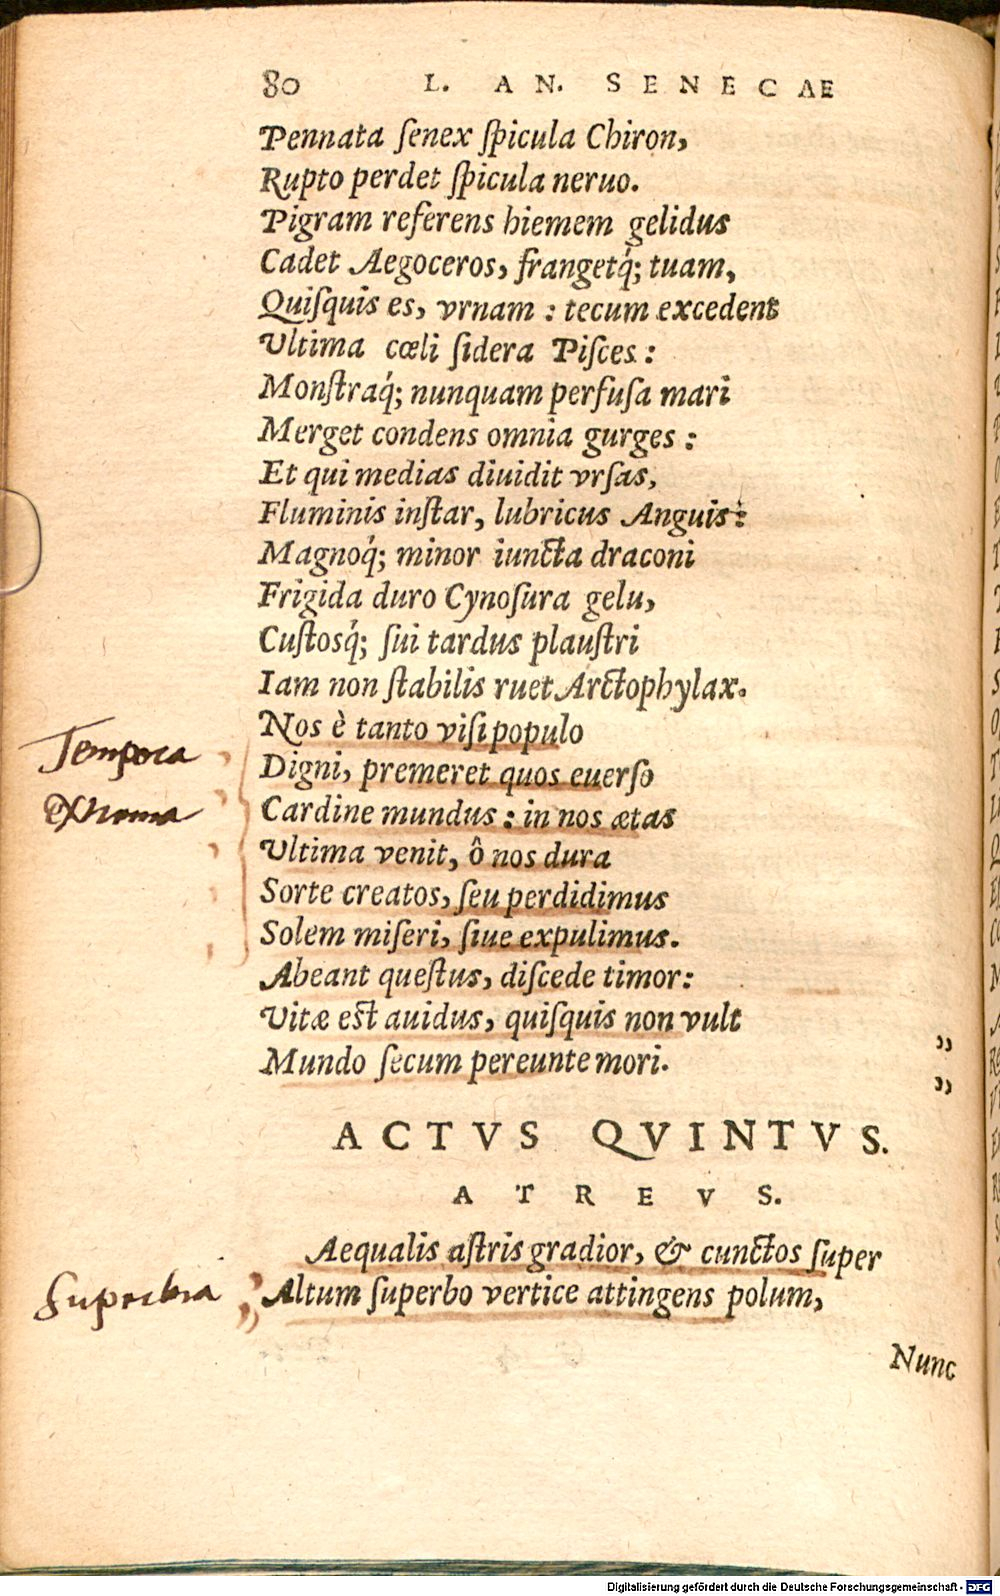 80 L. AN. SENECAE
Pennata ſenex ſpicula Chiron,
Rupto perdet ſpicula neruo.
Pigram referens hiemem gelidus
Cadet Aegoceros, frangetq́; tuam,
Quiſquis es, vrnam : tecum excedent
Ultima cœli ſidera Piſces :
Monſtraq́; nunquam perfuſa mari
Merget condens omnia gurges :
Et qui medias diuidit vrſas,
Fluminis inſtar, lubricus Anguis :
Magnoq́; minor iuncta draconi
Frigida duro Cynoſura gelu,
Cuſtosq́; ſui tardus plauſtri
Iam non ſtabilis ruet Arctophylax.
Nos è tanto viſi populo
Digni, premeret quos euerſo
Tempora
Cardine mundus : in nos ætas
extrema
Ultima venit, ô nos dura
Sorte creatos, ſeu perdidimus
Solem miſeri, ſiue expulimus.
Abeant queſtus, diſcede timor:
Vitæ est auidus, quiſquis non vult
Mundo ſecum pereunte mori. ”
”
ACTVS QVINTVS.
ATREVS.
Aequalis aſtris gradior, & cunctos ſuper
Superbia
Altum ſuperbo vertice attingens polum,
Nunc
Digitalisierung gefördert durch die Deutsche Forschungsgemeinschaft - DFG